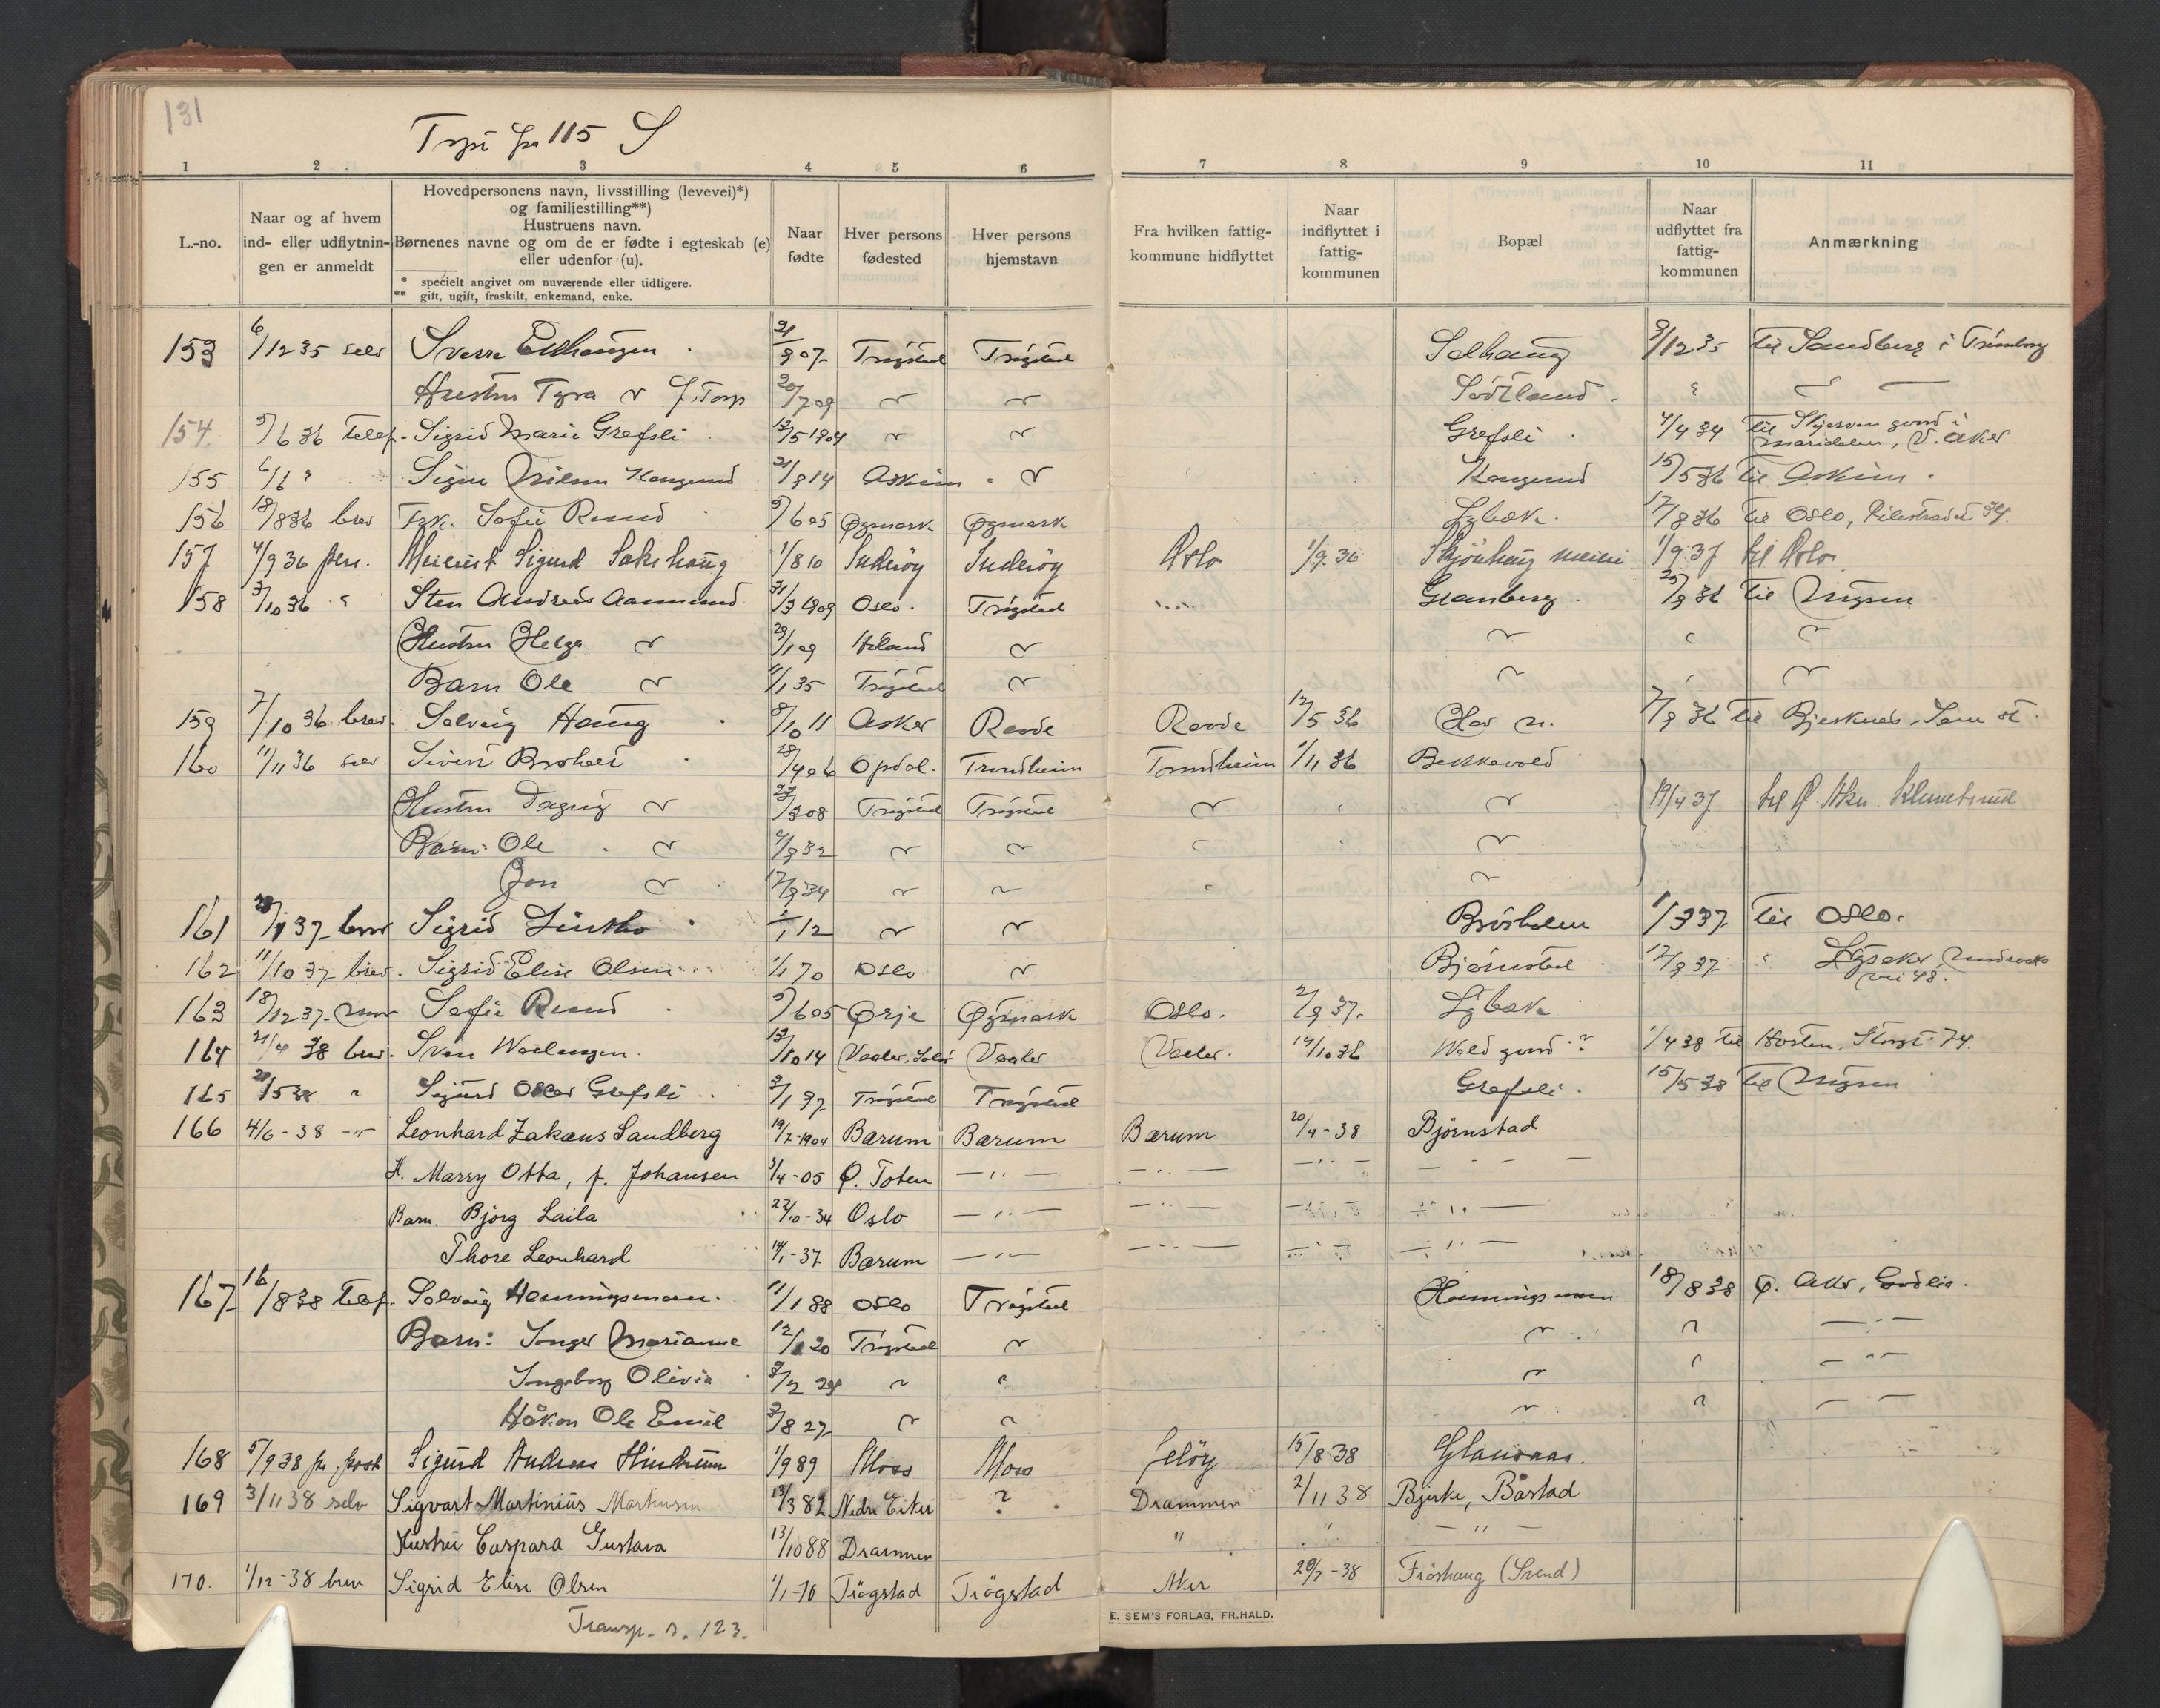 131
115 S
1 2 3 4 5 6 7 8 9 10 11
L.-no.
Naar og af hvem ind- eller udflytnin-gen er anmeldt
Hovedpersonens navn, livsstilling (levevei)*) og familiestilling**) Hustruens navn. Børnenes navne og om de er fødte i egteskab (e) eller udenfor (u).
* specielt angivet om nuværende eller tidligere.
** gift, ugift, fraskilt, enkemand, enke.
Naar fødte
Hver persons fødested
Hver persons hjemstavn
Fra hvilken fattig-kommune hidflyttet
Naar indflyttet i fattig-kommunen
Bopæl
Naar udflyttet fra fattig-kommunen
Anmærkning
153 6/12 35 selv Sverre Trøgstad Trøgstad Solhaug 9/12 35 til Sandberg i
Hustru Tyra " f. Torp 20/7 09 " "
154. 5/6 36 telef. Sigrid Marie Grefsli 13/5 1904 " " Grefsli 4/4 34 til Maridalen, V. Aker
155 6/6 " Signe Kongerud 21/9 14 Askim " Kongerud 15/5 36 til Askim
156 18/8 36 brev Frk. Sofie Rud 5/6 05 Øymark Øymark Lybæk 17/8 36 til Oslo, 34.
157 4/9 36 pers. Meierist Sigurd Sakshaug 1/8 10 Inderøy Inderøy Oslo 1/9 36 Skjønhaug meieri 1/9 37 til Oslo
158 3/10 36 " Sten Andreas Aamund 31/3 1909 Oslo Trøgstad Granberg 25/9 36 til Mysen
Hustru Helga " 29/1 09 " " " "
Barn Ole " 11/1 35 Trøgstad " " " "
159 7/10 36 brev Solveig Haug 8/10 11 Asker Raade Raade 12/5 36 Hov n. 7/9 36 til
160 11/11 36 selv Sivert 28/4 06 Opdal Trondheim Trondheim 1/11 36 Bekkevold
Hustru Dagny " 23/3 08 Trøgstad Trøgstad " " " 19/4 37 til Ø. Aker. Klemetsrud
Barn: Ole " 2/9 32 " " " " "
Jon " 17/9 34 " " " "
161 28/1 37 brev Sigrid 1/1 12 " " 1/3 37 til Oslo.
162 11/10 37 brev Sigrid Elise Olsen 1/1 70 Oslo " Bjørnstad 17/9 37 " Lysaker, vei 48.
163 18/12 37 Sofie Rud 5/6 05 Ørje Øymark Oslo. 2/9 37 Lybæk
164 21/4 38 brev 13/10 14 Vaaler, Solør Vaaler Vaaler. 14/10 36 Wold 1/4 38 til Horten, Storgt. 74.
165 20/5 38 " Sigurd Oskar Grefsli 3/1 97 Trøgstad Trøgstad Grefsli 15/5 38 til Mysen
166 4/6-38 -"- Leonhard Zakæus Sandberg 19/7-1904 Bærum Bærum Bærum 20/4-38 Bjørnstad
H. Marry Otta, f. Johansen 3/4-05 Ø. Toten — " — — " — — " — — " —
Barn. Bjørg Laila 22/10-34 Oslo — " — — " — — " — — " —
Thore Leonhard 14/1-37 Bærum — " — — " — — " — — " —
167 16/8 38 telef. Solveig Henningsmoen 11/1 88 Oslo Trøgstad Henningsmoen 18/8 38 Ø. Aker, Godlia.
Barn: Inger Marianne 12/1 20 Trøgstad " " " — " —
Ingeborg Olivia 3/2 24 " " " " — " —
Håkon Ole Emil 3/8 27 " " " " — " —
168 5/9 38 pr. post Sigurd Andreas 1/9 89 Moss Moss Jeløy 15/8 38 Glaunaas.
169 3/11 38 selv Sigvart Martinius Martinsen 13/3 82 Nedre Eiker ? Drammen 2/11 38 Bjerke, Båstad
Hustru Caspara Gustava 13/10 88 Drammen " " — " —
170. 1/12-38 brev Sigrid Elise Olsen 1/1-70 Trøgstad Trøgstad Aker 20/7-38 Frøshaug (Svend)
Transp. s. 123.
E. SEM'S FORLAG, FR.HALD.